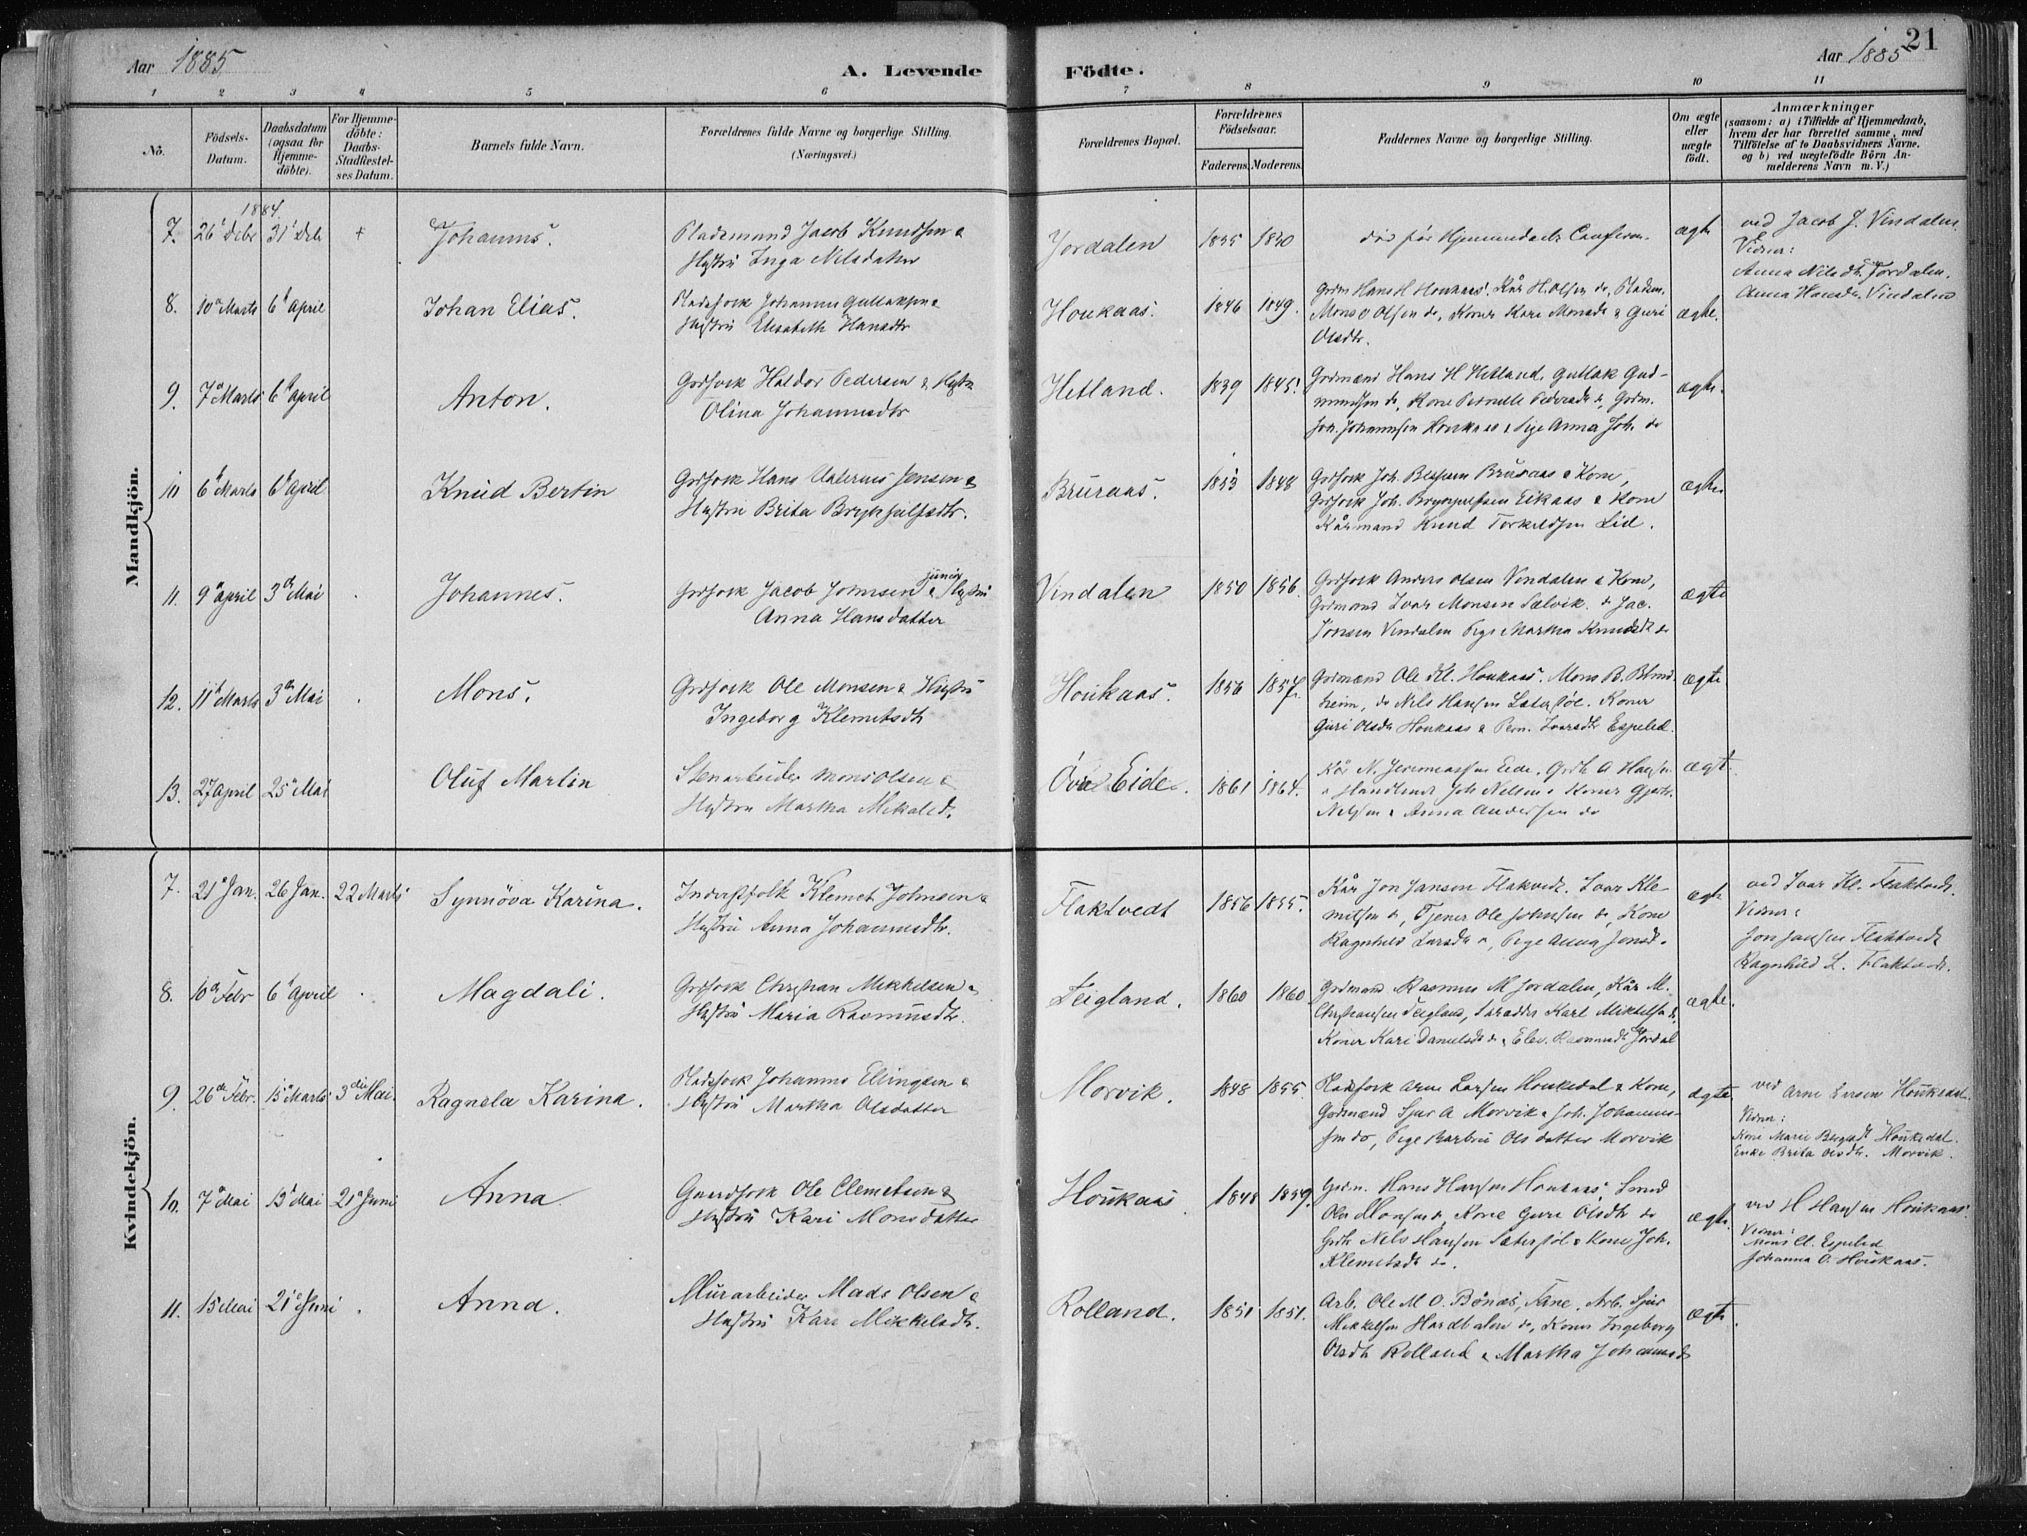 Aar 1885
A. Levende Födte.
Aar 1885
21
1 2 3 4 5 6 7 8 9 10 11
No.
Födsels-Datum.
Daabsdatum (ogsaa for Hjemme-döbte).
For Hjemme-döbte: Daabs-Stadfæstel-ses Datum.
Barnets fulde Navn.
Forældrenes fulde Navne og borgerlige Stilling. (Næringsvei.)
Forældrenes Bopæl.
Forældrenes Födselsaar.
Faderens. Moderens.
Faddernes Navne og borgerlige Stilling.
Om ægte eller uægte födt.
Anmærkninger (saasom: a) i Tilfælde af Hjemmedaab, hvem der har forrettet samme, med Tilföielse af to Daabsvidners Navne, og b) ved uægtefödte Börn An-melderens Navn m. V.)
Mandkjön.
1884.
7. 26 Debr 31 Deb + Johannes. Pladsmand Jacob Knudsen & Hustru Inga Nilsdatter Jordalen 1835 1830 död før Hjemmedaabs Confirm. ægte ved Jacob J. Vindalen
Vidner:
Anna Nilsdtr Jordalen.
Anna Hansdtr. Vindalen
8. 10 Marts 6 April Johan Elias. Pladsfolk Johannes Gullaksen & Hustru Elisabeth Hansdtr Houkaas. 1846 1849. Grdm Hans H Houkaas. Kår H. Olsen do, Pladsm. Mons Olsen do, Koner Kari Monsdtr & Guri Olsdtr. ægte.
9. 7 Marts 6 April Anton. Grdfolk Haldor Pedersen & Hustru Olina Johannesdtr Hetland. 1839 1845. Grdmænd Hans H Hetland. Gullak Gud-mundsen do, Kone Pernille Pedersdtr do, Grdm. Joh. Johannesen Houkaas & Pige Anna Joh. do ægte.
10 6 Marts 6 April Knud Bertin Grdfolk Hans Jensen & Hustru Brita Brynjulfsdtr. Bruraas. 1853 1848 Grdfolk Joh. Bruraas & Kone, Grdfolk Joh. Brynjulfsen Eikaas & Kone Kårmand Knud Torkildsen Lid. ægte
11. 9 April 3 Mai . Johannes. Grdfolk Jacob Johnsen junior & Hustru Anna Hansdatter Vindalen 1850 1856. Grdfolk Anders Olsen Vindalen & Kone, Grdmand Ivar Monsen Sælvik. do Jac. Jonsen Vindalen Pige Martha Knudsdtr do ægte
12. 11 Marts 3 Mai . Mons. Grdfolk Ole Monsen & Hustru Ingeborg Klemetsdtr Houkaas. 1856 1857. Grdmænd Ole Kl. Houkaas. Mons B. Blind-heim, do Nils Hansen Sætersföl. Koner Guri Olsdtr Houkaas & Pern. Ivarsdtr Espeled. ægte
13. 27 April 25 Mai Oluf Martin Stenarbeider Mons Olsen & Hustru Martha Mikalsd. Övre Eide. 1861 1864. Kår N. Jeremiassen Eide. Grdb A Hansen & Handlende Joh Nilsen & Koner Nilsen & Anna Andersen do ægte.
Kvindekjön.
7. 21 Jan. 26 Jan. 22 Marts Synnöva Karina. Inderstfolk Klemet Johnsen & Hustru Anna Johannesdtr. Flaktvedt 1856 1855. Kår Jon Jansen Flakvedt. Ivar Kle-metsen do, Tjener Ole Johnsen do, Kone Ragnhild Larsdtr do, Pige Anna Jonsd. ægte ved Ivar Kl. Flaktvedt.
Vidner:
Jon Jansen Flaktvedt
Ragnhild L. Flaktvedt.
8. 10 Febr 6 April . Magdali. Grdfolk Christian Mikkelsen & Hustru Maria Rasmusdtr. Teigland. 1860 1860 Grdmand Rasmus M Jordalen, Kår M. Christiansen Teigland, Karl Mikkelsen do, Koner Kari Danielsdtr do & Elev. Rasmusdtr Jordal ægte.
9. 26 Febr. 15 Marts 3die Mai. Ragnela Karina. Pladsfolk Johannes Ellingsen & Hustru Martha Olsdatter Morvik. 1848 1855. Pladsfolk Arne Larsen Houkedal & Kone, Grdmænd Sjur A Morvik & Joh. Johannes-sen do, Pige Barbru Olsdatter Morvik ægte ved Arne Larsen Houkedal.
Vidner:
Kone Marie Houkedal.
Enke Brita Olsdtr. Morvik.
10. 7 Mai 13 Mai 21 Juni Anna Gaardfolk Ole Clemetsen & Hustru Kari Monsdatter Houkaas 1848 1859. Grdm. Hans Hansen Houkaas, Ole Monsen do, Kone Guri Olsdtr do Grdb Nils Hansen Sætersföl & Kone Joh. Klemetsdtr do. ægte. ved H Hansen Houkaas.
Vidner:
Mons Cl. Espeled
Johanna O. Houkaas.
11. 15 Mai 21 Juni . Anna. Murarbeider Mads Olsen & Hustru Kari Mikkelsdtr. Rolland. 1851 1851. Arb. Ole M O. Bönæs, Fane, Arb. Sjur Mikkelsen do, Koner Ingeborg Olsdtr Rolland & Martha Johannesd. ægte.